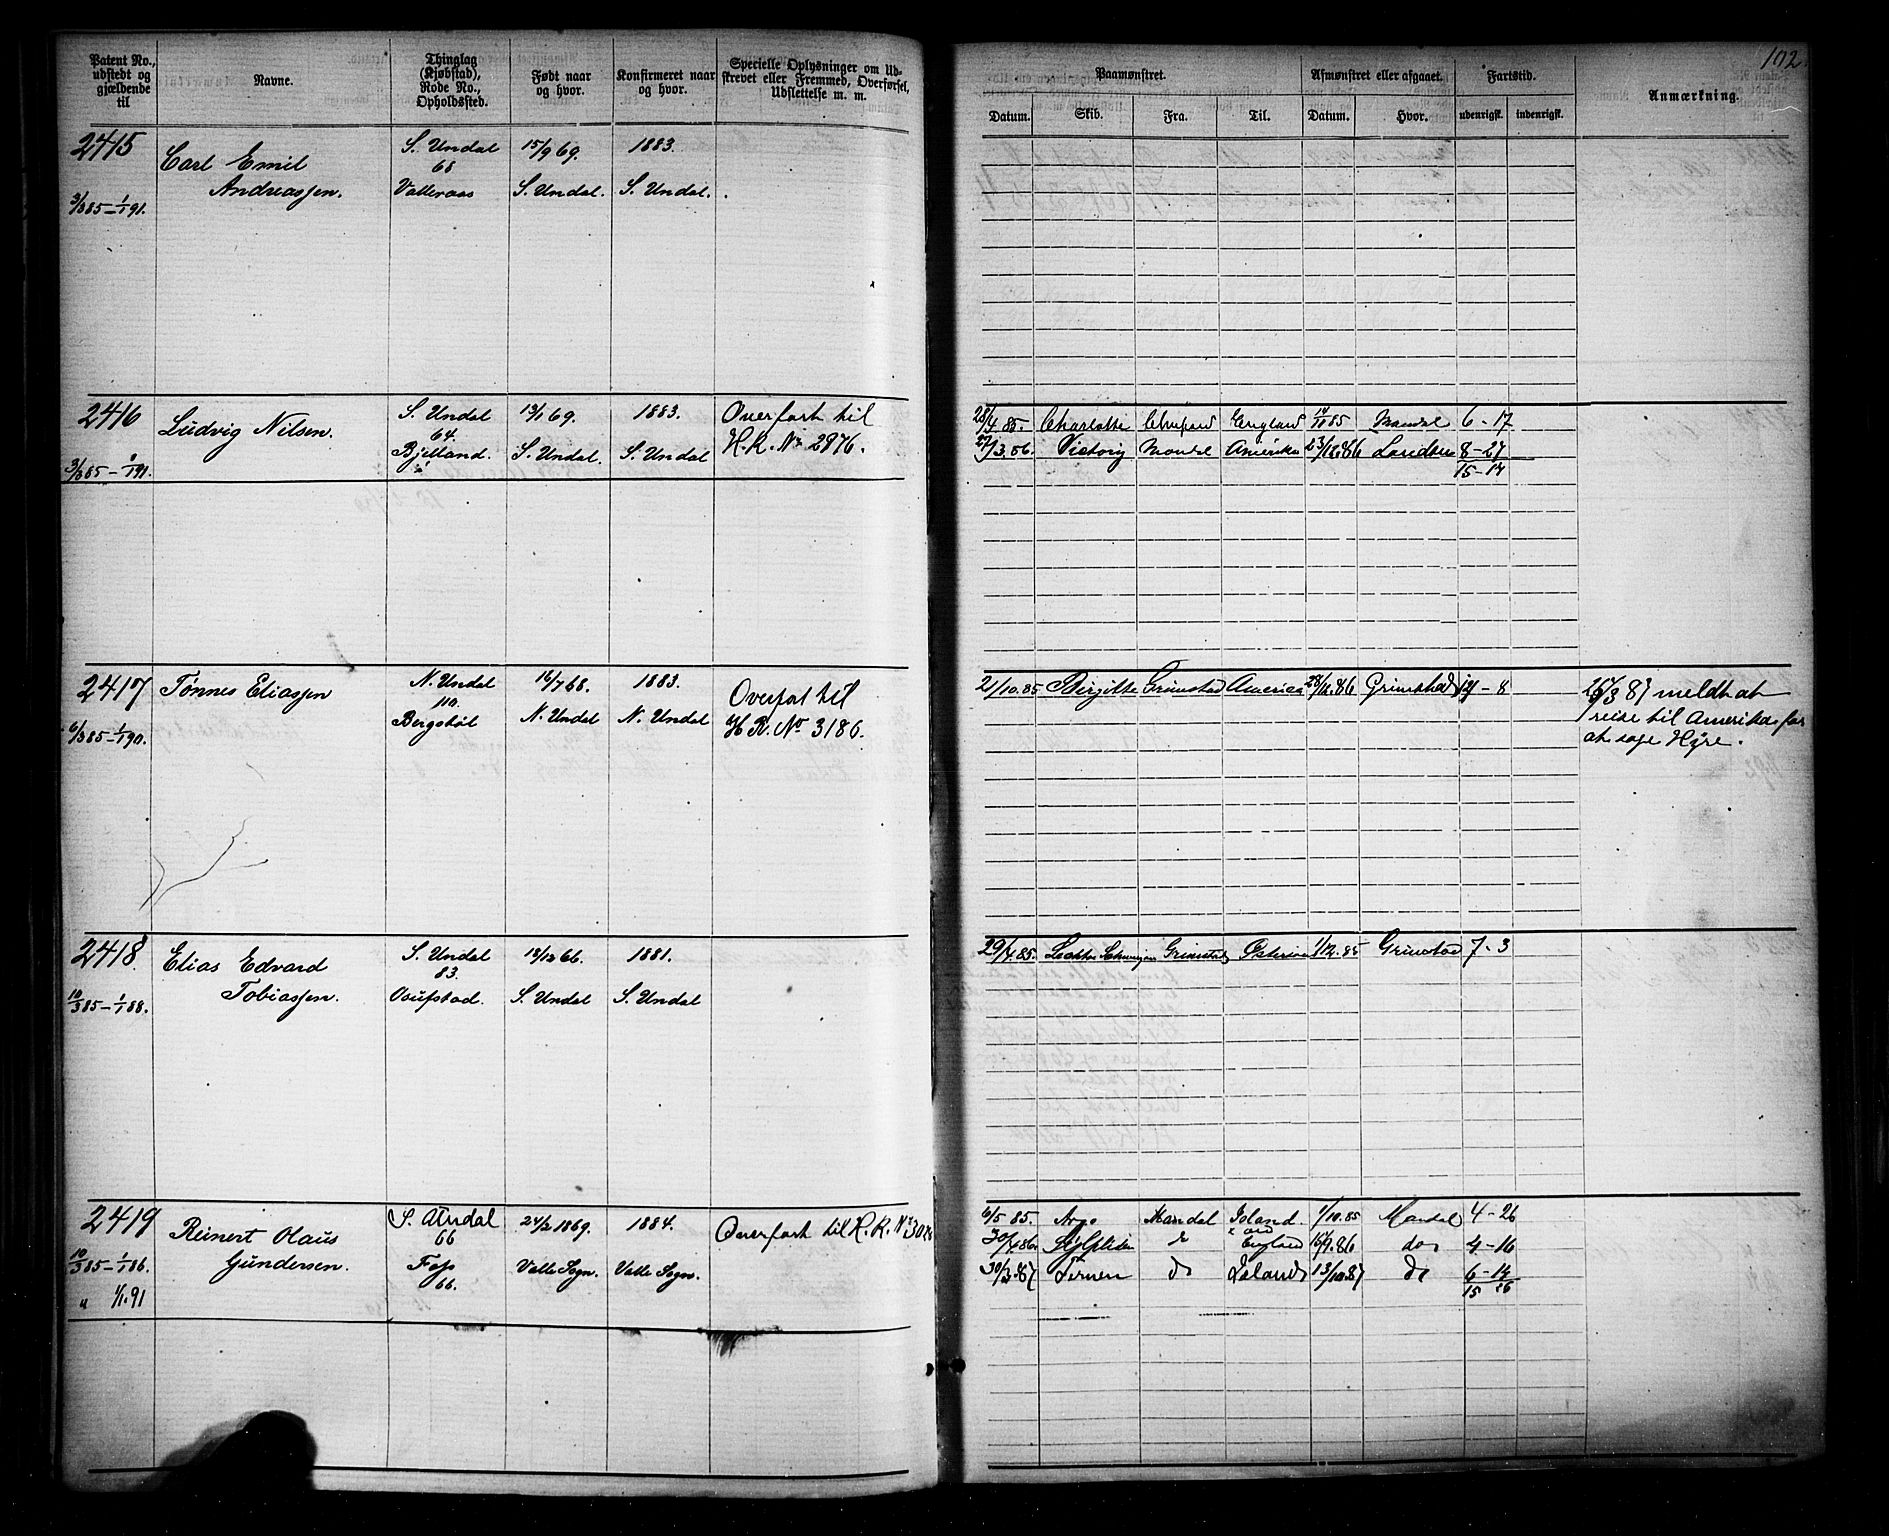 102
Patent No., udstedt og gjældende til
Navne.
Thinglag (Kjøbstad), Rode No., Opholdssted.
Født naar og hvor.
Konfirmeret naar og hvor.
Specielle Oplysninger om Udstrevet eller Fremmed, Overførsel, Udslettelse m. m.
Paamønstret.
Afmønstret eller afgaaet.
Fartstid.
Anmærkning.
Datum.
Skib.
Fra.
Til.
Datum.
Hvor.
udenrigsk.
indenrigsk.
2415
Carl Emil
Andreassen.
S. Undal
68
Valleraas
15/9 69.
S. Undal.
1883.
S. Undal.
3/3 85 – 1/1 91.
2416
Ludvig Nilsen.
S. Undal
64.
Bjelland.
13/1 69.
S. Undal.
1883.
S. Undal
Overført til
H. R. No 2876.
3/3 85 – 1/1 91.
28/4 85.
Charlotte
England
14/11 85
Mandal
6 – 17
Victoria
Mandal
Amerika
23/12.86
8 – 27
15 – 14
2417
Tønnes Eliassen
N. Undal
110.
Bergstøl
16/7 68.
N. Undal
1883.
N. Undal
Overført til
H R. No 3186.
6/3 85 – 1/1 90.
21/10.85
Birgitte
Grimstad
America
28/12.86
Grimstad
14 – 8
26/3 87 meldt at
reise til Amerika for
at søge Hyre.
2418
Elias Edvard
Tobiassen.
S. Undal
83.
Ovufstad.
18/12 66.
S. Undal
1881.
S. Undal
10/3 85 – 1/1 88.
29/4.85.
Grimstad
1/12.85
Grimstad
7 – 3
2419
Reinert Olaus
Gundersen.
S. Undal
66
Foss
66.
24/2 1869.
Valle Sogn.
1884.
Valle Sogn.
Overført til H. R. No 3028
10/3 85 – 1/1 86.
" 1/1.91
6/5 85.
Argo
Mandal
Island
1/10.85
Mandal
4 – 26
30/4 86.
England
16/9.86
do
4 – 16
30/3.87
Ternen
do
Island
13/10.87
do
6 – 14
15 26